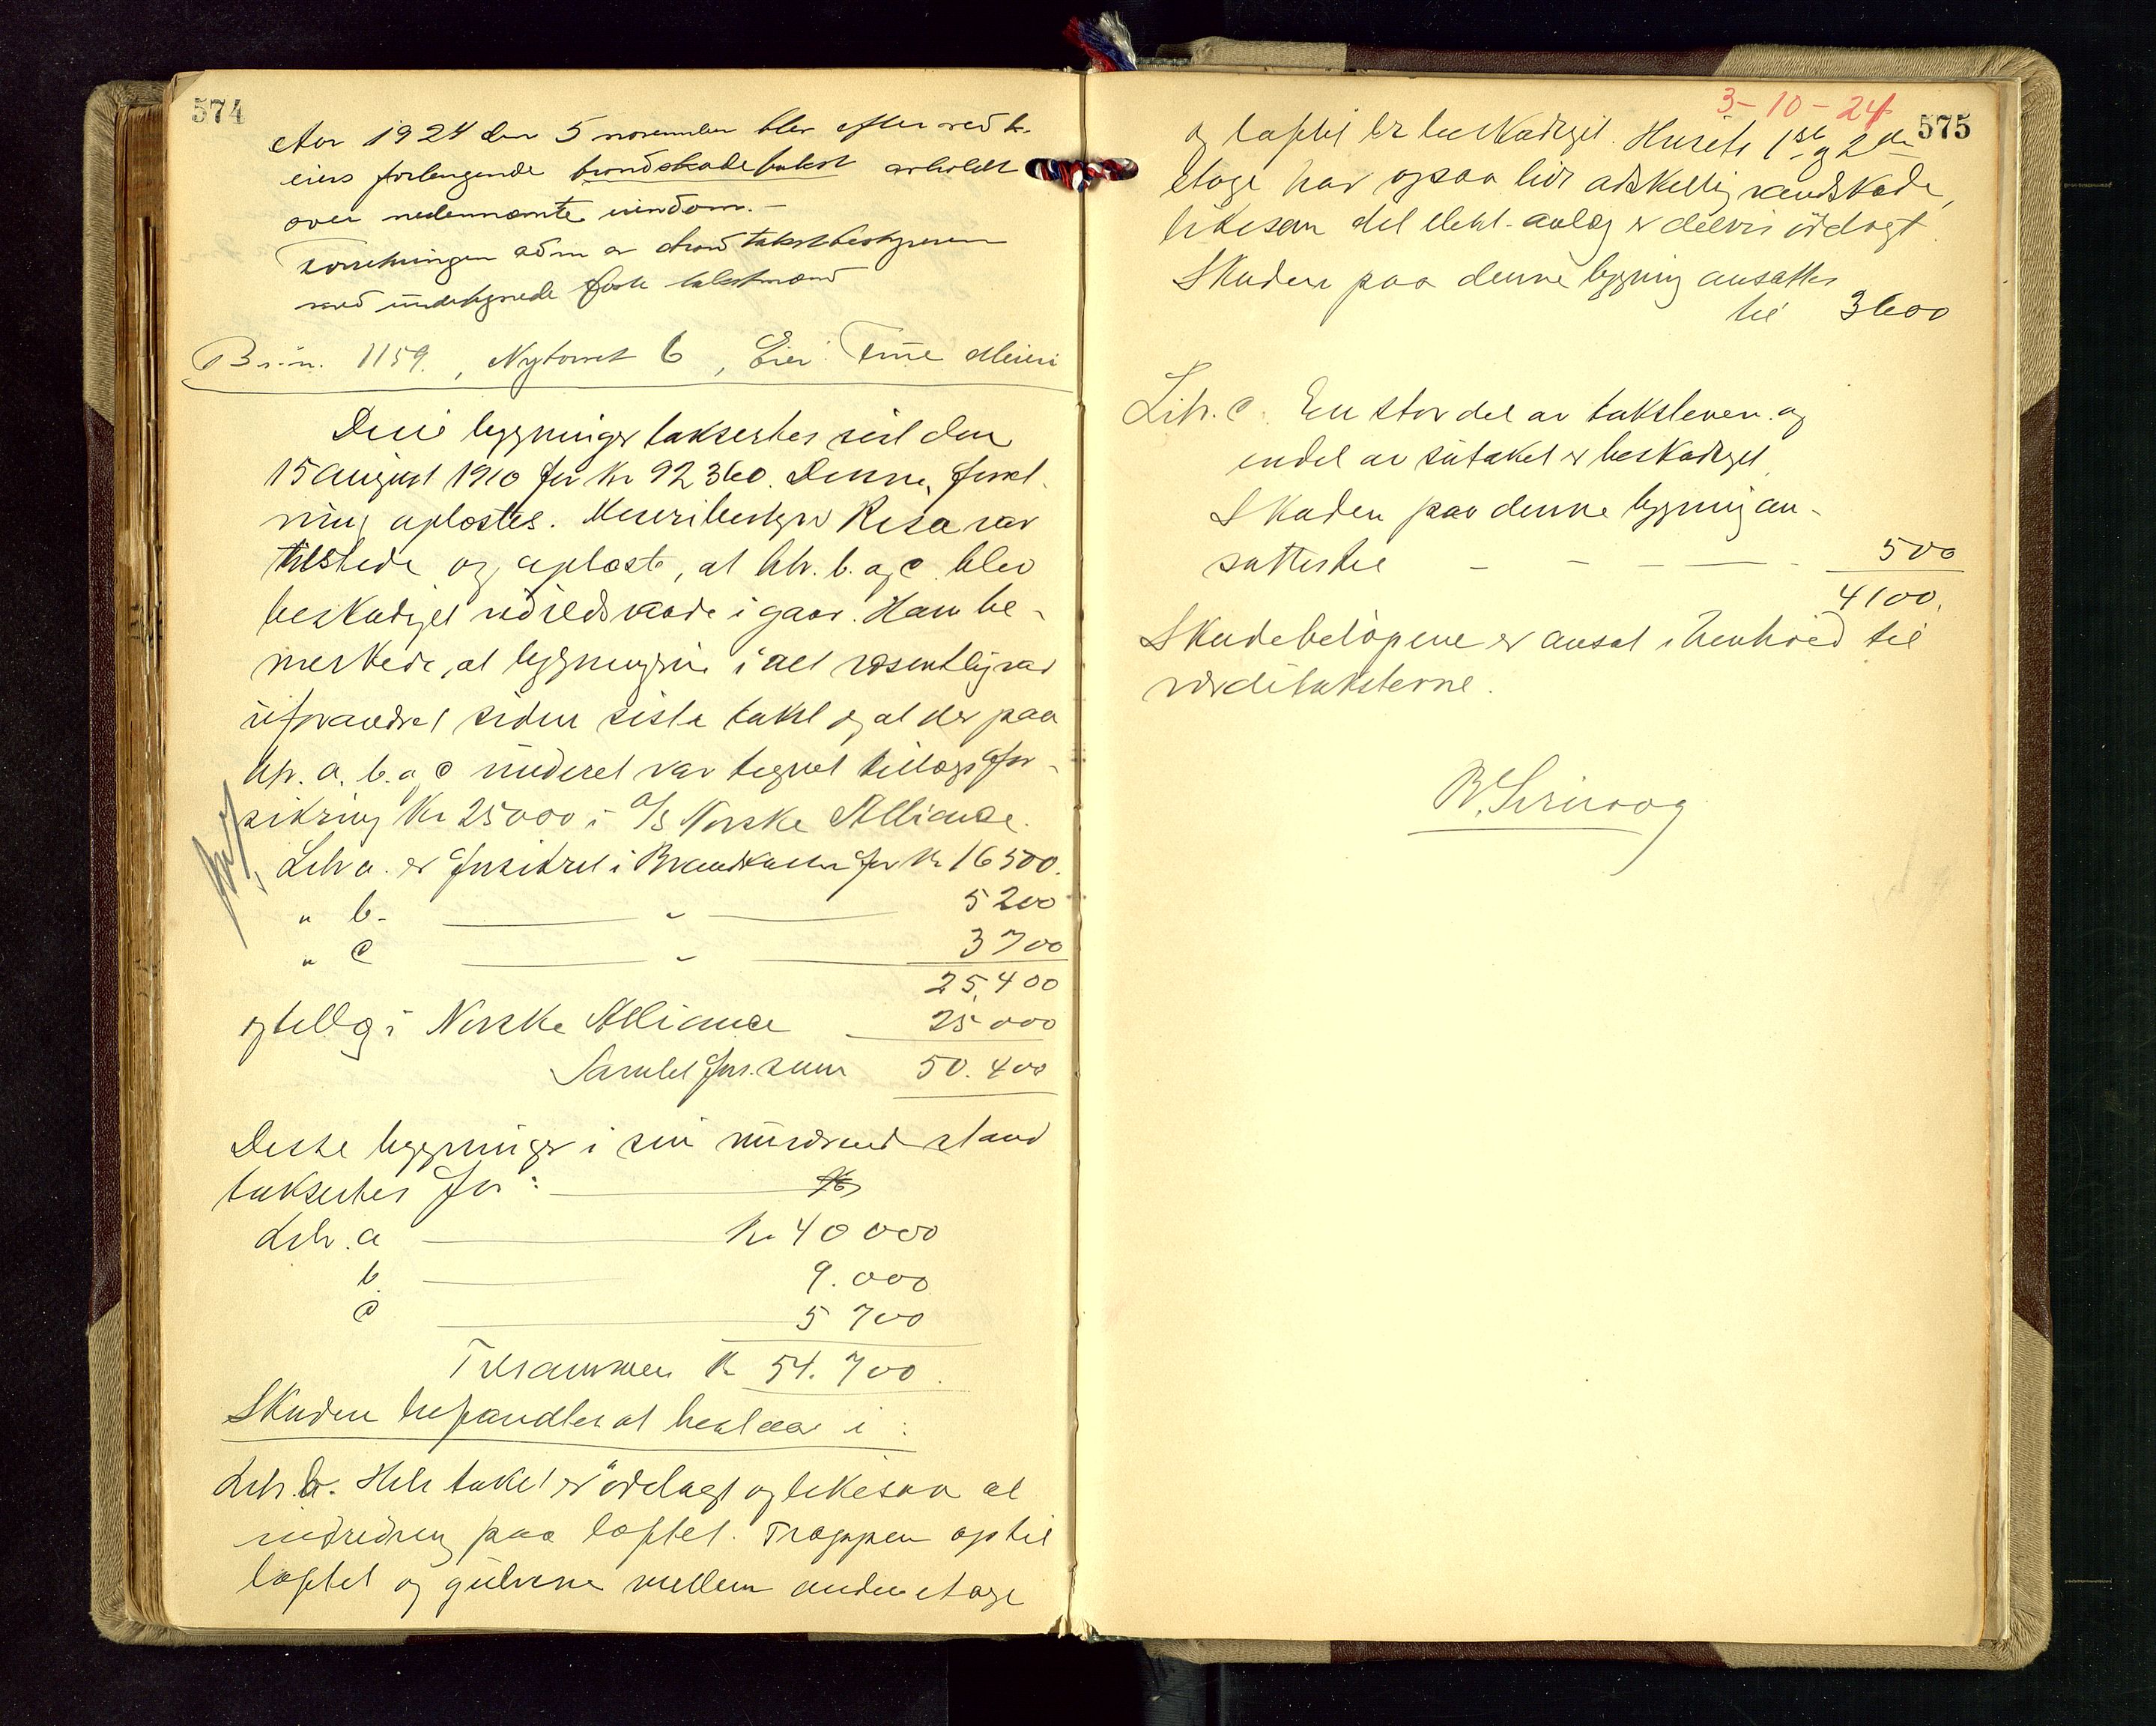 574
Aar 1924 den 5 november blev efter ved k.
eiers forlangende brandskadetakst avholdt
over nedennævnte eiendom. –
Forretningen adm av takstbestyreren
med undertegnede faste takstmænd
Br.n. 1159, Nytorvet 6, Eier: Time Meieri
Disse bygninger taksertes sist den
15 august 1910 for Kr 92360. Denne forret-
ning oplæstes. Meieribestyrer Risa var
tilstede og oplæste, at litr. b. og c. blev
beskadiget ved ildsvaade i gaar. Han be-
merkede, at bygningene i alt væsentlig var
uforandret siden siste takst og at der paa
litr. a. b. og c underet var tegnet tillægsfor-
sikring Kr 25000 i A/S Norske Alliance.
Litr a. er forsikret i Brandkassen for Kr 16500.
" b. — " — 5200
" c — " — 3700
25,400
og tillæg i Norske Alliance 25000
Samlet fors.sum 50.400
Disse bygninger i sin nuværende stand
taksertes for:
Litr. a — Kr 40000
b — 9.000
c — 5700
Tilsammen Kr 54.700.
Skaden befandtes at bestaar i:
Litr. b. Hele taket er ödelagt og likesaa al
indredning paa loftet. Trappen op til
loftet og gulvene mellem anden etage
3-10-24
575
og loftet er beskadiget. Husets 1ste og 2den
etage har ogsaa lidt adskellig vandskade,
likesom det elekt. anlæg er delvis ödelagt.
Skaden paa denne bygning ansattes
til 3600
Litr. c. En stor del av taksteinen og
endel av sutaket er beskadiget.
Skaden paa denne bygning an-
sattes til — — — 500
4100.
Skadebelöpene er ansat i henhold til
værditaksterne.